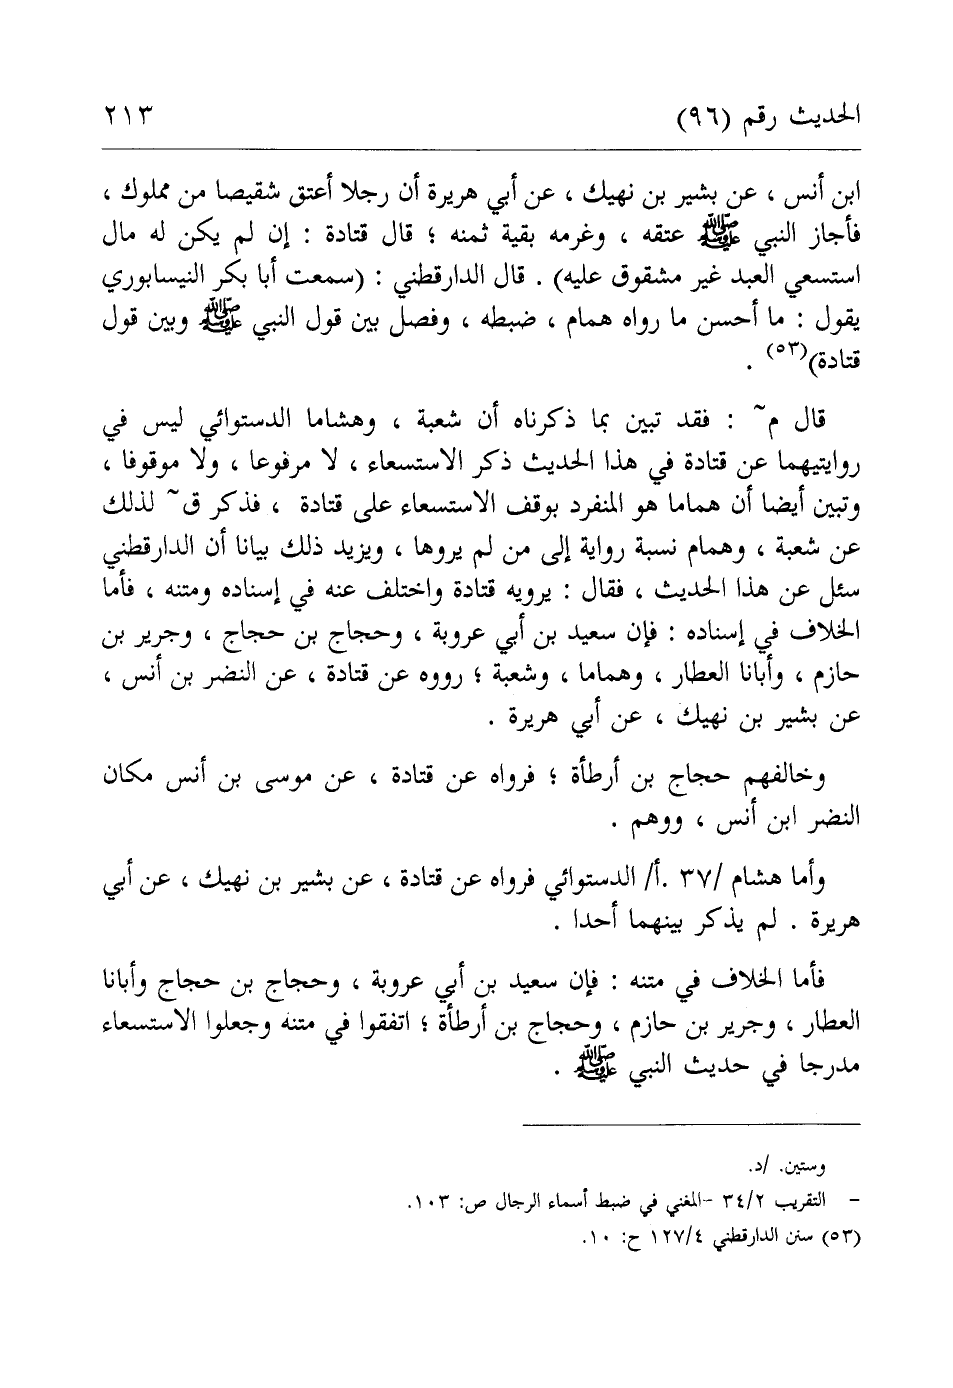 الحديث رقم (٩٦) ٢١٣
ابن أنس ، عن بشير بن نهيك ، عن أبي هريرة أن رجلا أعتق شقيصا من مملوك ،
فأجاز النبي ﷺ عتقه ، وغرمه بقية ثمنه ؛ قال قتادة : إن لم يكن له مال
استسعي العبد غير مشقوق عليه) . قال الدارقطني : (سمعت أبا بكر النيسابوري
يقول : ما أحسن ما رواه همام ، ضبطه ، وفصل بين قول النبي ﷺ وبين قول
قتادة)(٥٣) .
قال م~ : فقد تبين بما ذكرناه أن شعبة ، وهشاما الدستوائي ليس في
روايتيهما عن قتادة في هذا الحديث ذكر الاستسعاء ، لا مرفوعا ، ولا موقوفا ،
وتبين أيضا أن هماما هو المنفرد بوقف الاستسعاء على قتادة ، فذكر ق~ لذلك
عن شعبة ، وهمام نسبة رواية إلى من لم يروها ، ويزيد ذلك بيانا أن الدارقطني
سئل عن هذا الحديث ، فقال : يرويه قتادة واختلف عنه في إسناده ومتنه ، فأما
الخلاف في إسناده : فإن سعيد بن أبي عروبة ، وحجاج بن حجاج ، وجرير بن
حازم ، وأبانا العطار ، وهماما ، وشعبة ؛ رووه عن قتادة ، عن النضر بن أنس ،
عن بشير بن نهيك ، عن أبي هريرة .
وخالفهم حجاج بن أرطأة ؛ فرواه عن قتادة ، عن موسى بن أنس مكان
النضر ابن أنس ، ووهم .
وأما هشام /٣٧ .أ/ الدستوائي فرواه عن قتادة ، عن بشير بن نهيك ، عن أبي
هريرة . لم يذكر بينهما أحدا .
فأما الخلاف في متنه : فإن سعيد بن أبي عروبة ، وحجاج بن حجاج وأبانا
العطار ، وجرير بن حازم ، وحجاج بن أرطأة ؛ اتفقوا في متنه وجعلوا الاستسعاء
مدرجا في حديث النبي ﷺ .
وستين. /د.
– التقريب ٣٤/٢ -المغني في ضبط أسماء الرجال ص: ١٠٣.
(٥٣) سنن الدارقطني ١٢٧/٤ ح: ١٠.